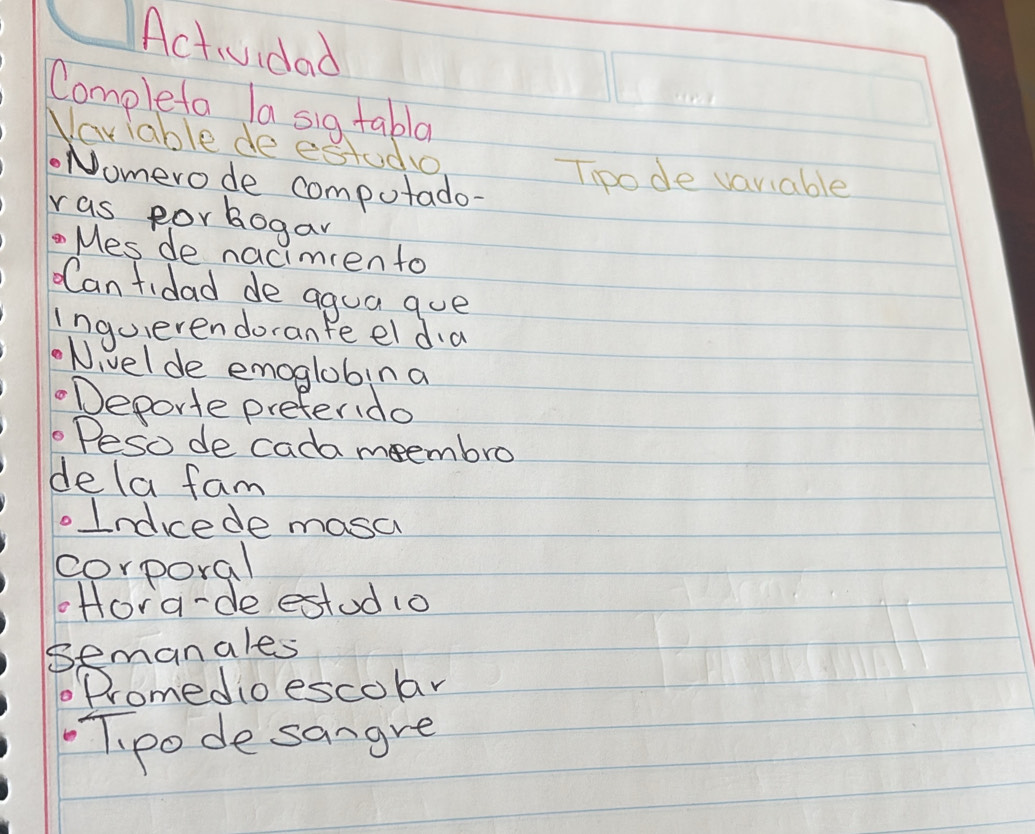 Actividad
Completa la sig tabla
Variable de estudio
Tipo de variable
•Numero de computado-
ras por hogar
•Mes de nacimiento
•Cantidad de agua que
inguieren dorante el dia
•Nivel de emoglobina
•Deporte preferido
•Peso de cada meembro
de la fam
•Indice de masa
corporal
•Hora-de estudio
semanales
•Promedio escolar
•Tipo de sangre